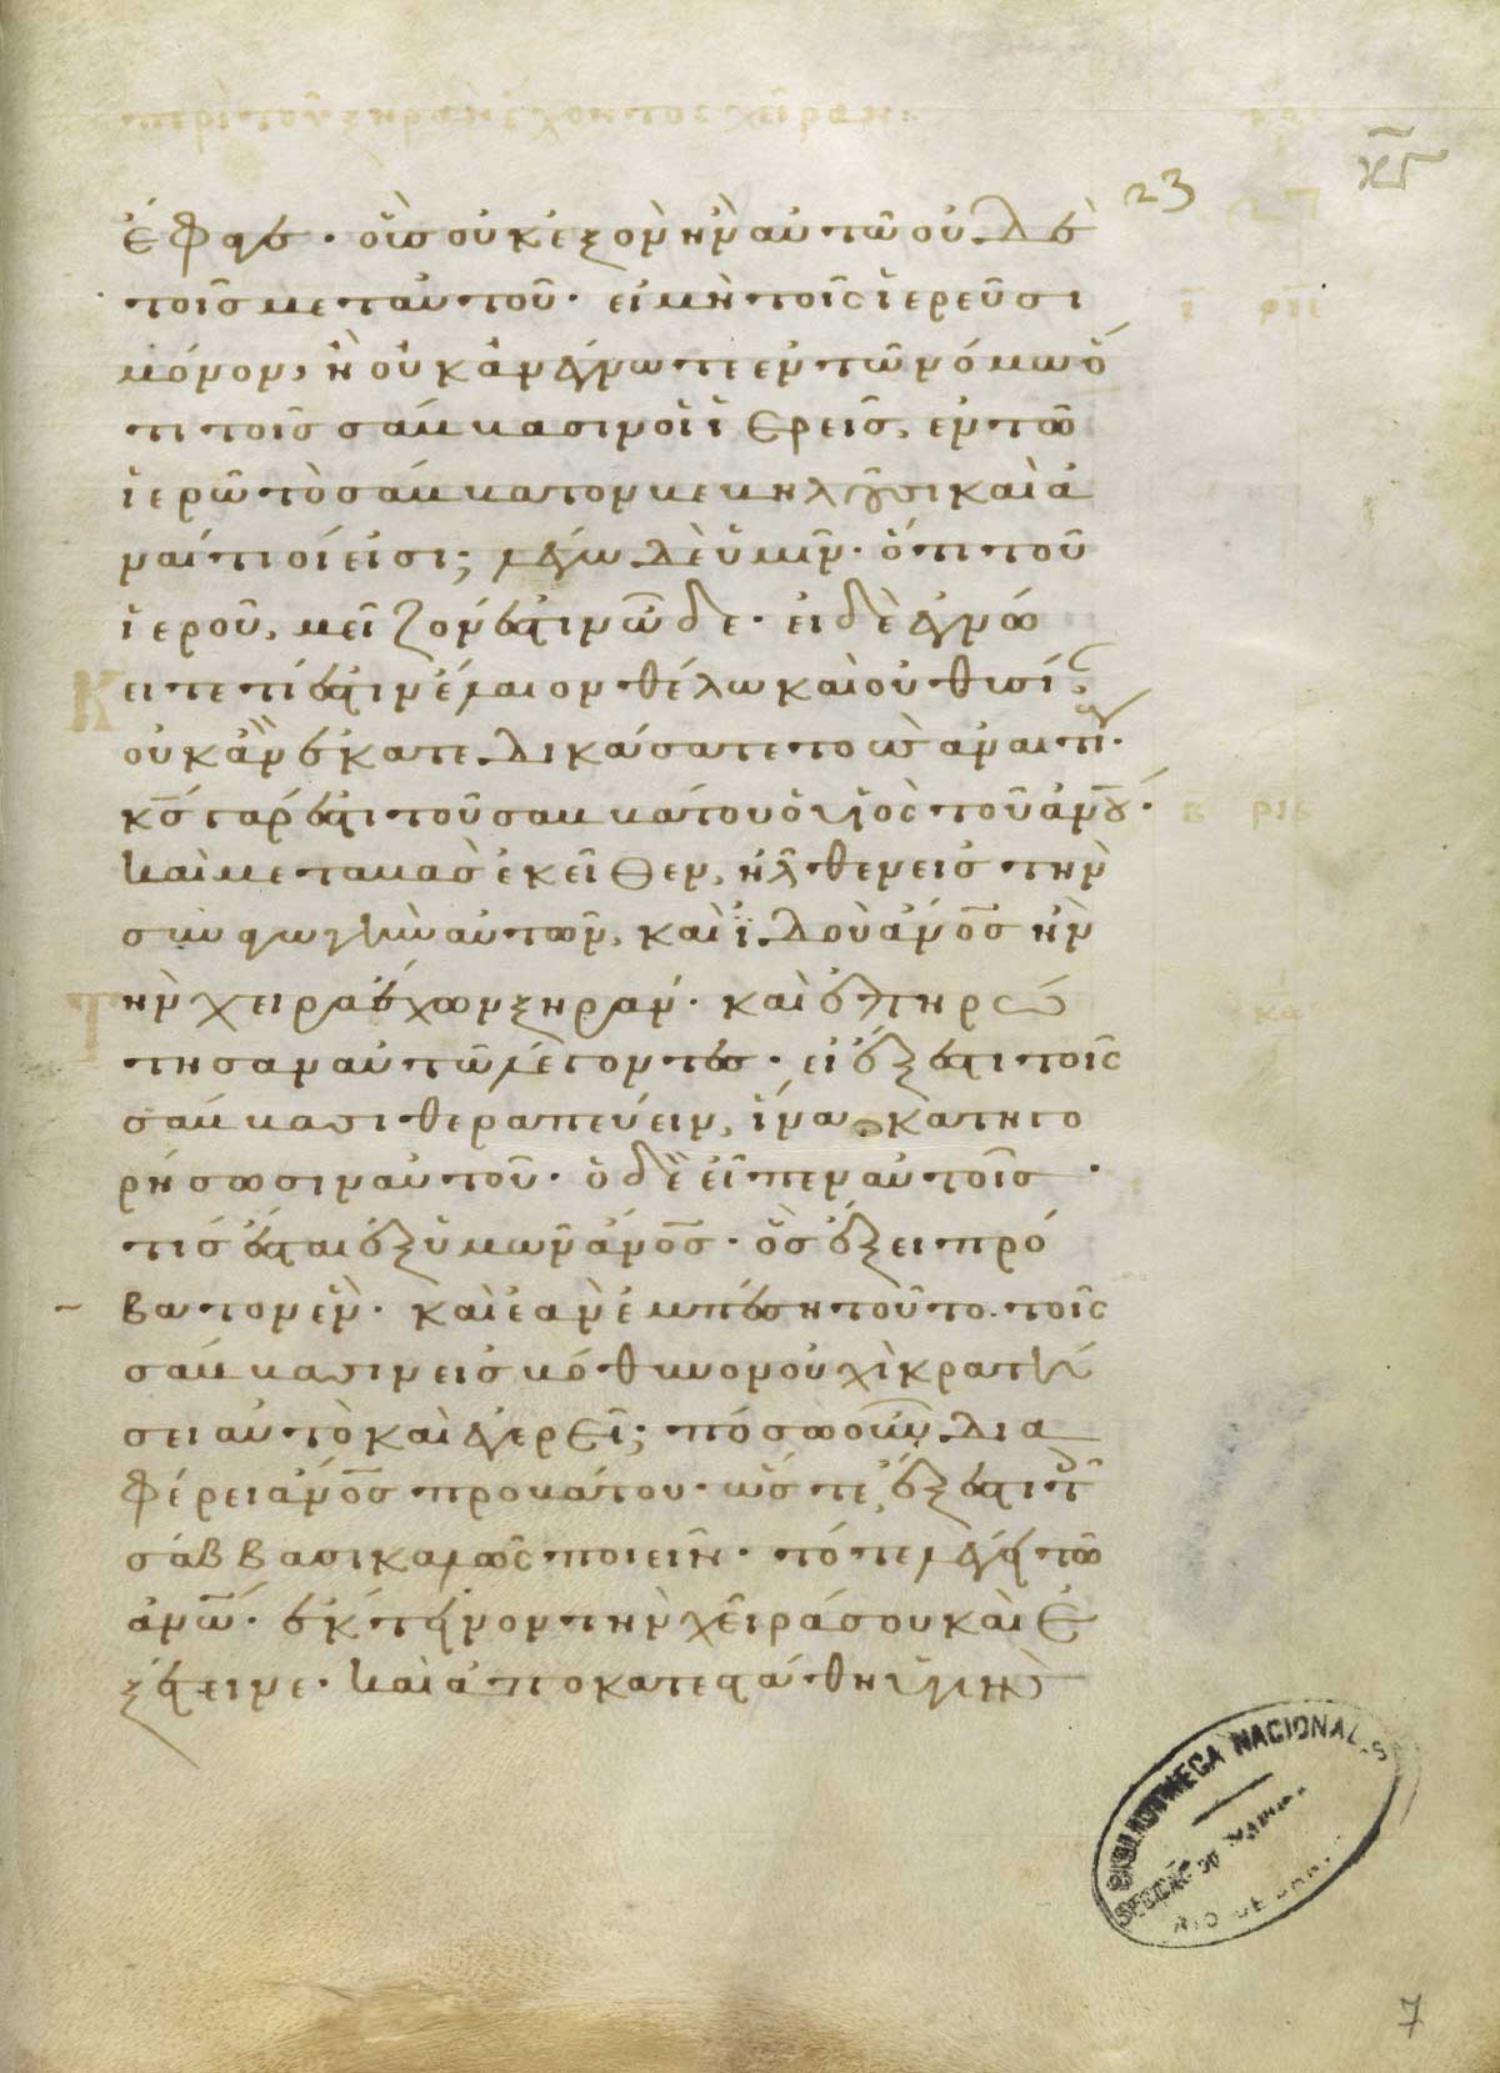 περὶ τοῦ ξηρὰν ἔχοντος χεῖρα
23
κγ
ἔφαγε· οὓς οὐκ ἐξὸν ἦν αὐτῶ οὐδὲ
τοῖς μετ αὐτοῦ· εἰ μὴ τοῖς ἱερεῦσι
μόνον, ἢ οὐκ ἀνέγνωτε ἐν τῶ νόμω ὅ
τι τοῖς σάββασιν οἱ ἱερεῖς, ἐν τῶ
ἱερῶ τὸ σάββατον βεβηλοῦσι καὶ ἀ
ναίτιοί εἰσι; λέγω δὲ ὑμῖν· ὅτι τοῦ
ἱεροῦ, μεῖζόν ἐστιν ὧδε· εἰ δὲ ἐγνώ
κειτε τί ἐστιν ἔλαιον θέλω καὶ οὐ θυσί
οὐκ ἂν κατεδικάσατε τοὺς ἀναιτί·
κς γάρ ἐστι τοῦ σαββάτου ὁ υἱὸς τοῦ ἀνου·
Καὶ μεταβὰς ἐκεῖθεν, ἦλθεν εἰς τὴν
συναγωγὴν αὐτῶν, καὶ ἰδοὺ ἄνος ἦν
τὴν χεῖρα ἔχων ξηράν· καὶ ἐπηρώ
τησαν αὐτὸν λέγοντες· εἰ ἔξεστι τοῖς
σάββασι θεραπεύειν, ἵνα κατηγο
ρήσωσιν αὐτοῦ· ὁ δὲ εἶπεν αὐτοῖς·
τίς ἔσται ἐξ ὑμῶν ἄνος· ὃς ἕξει πρό
βατον ἕν· καὶ ἐὰν ἐμπέση τοῦτο τοῖς
σάββασιν εἰς βόθυνον οὐχὶ κρατή
σει αὐτὸ καὶ ἐγερεῖ; πόσω οὖν δια
φέρει ἄνος προβάτου· ὥστε ἔξεστι τ
σάββασι καλῶς ποιεῖν· τότε λέγει τῶ
ἀνω· ἔκτεινον τὴν χεῖρά σου καὶ ἐ
ξέτεινε· Καὶ ἀποκατεστάθη ὑγιὴς
BIBLIOTHECA NACIONAL
RIO DE
7